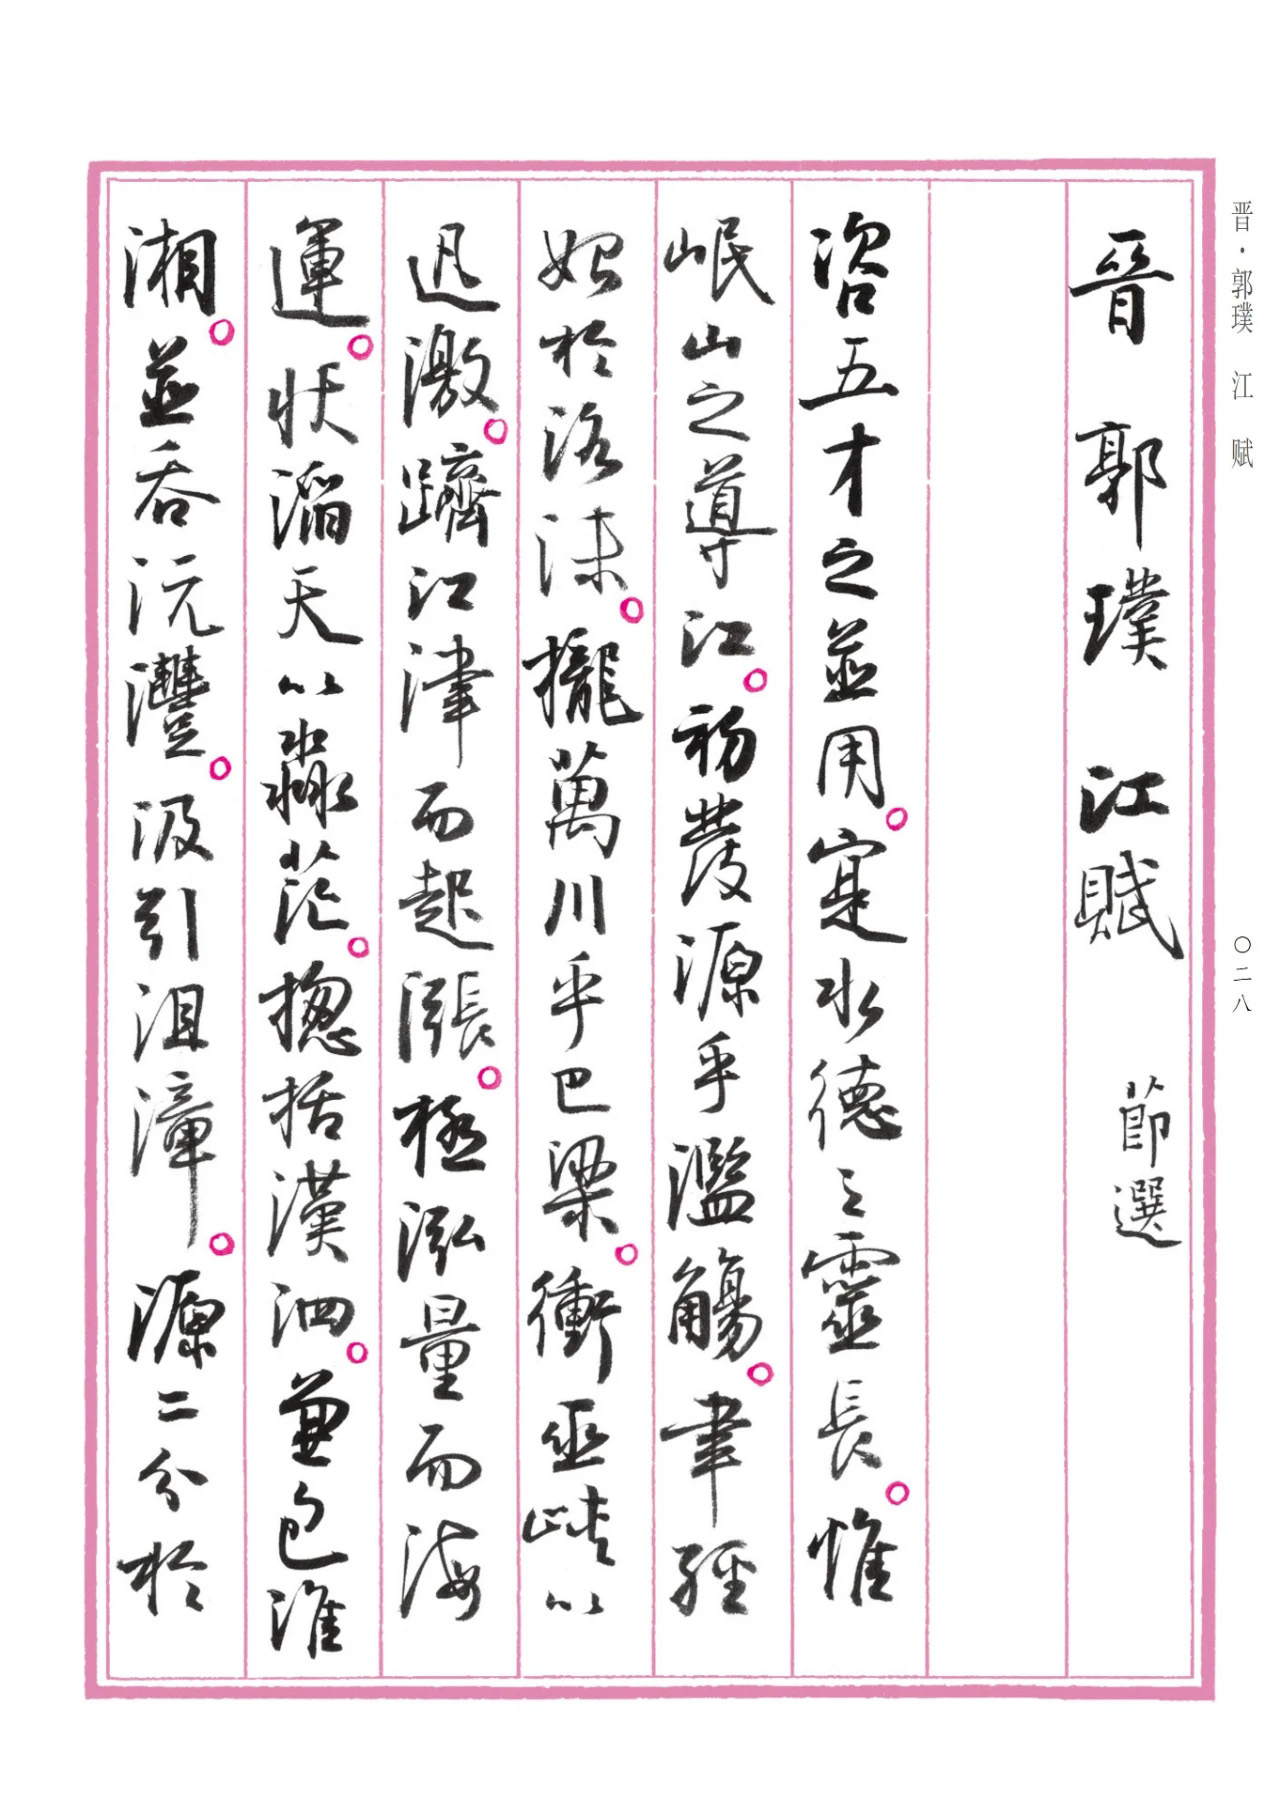 晋·郭璞 江 赋
〇二八
晉 郭 璞 江 賦 節選
咨五才之並用。寔水德之靈長。惟
岷山之導江。初發源乎濫觴。聿經
始於洛沬。攏萬川乎巴梁。衝巫峽以
迅激。躋江津而起漲。極泓量而海
運。狀滔天以淼茫。揔括漢泗。兼包淮
湘。並吞沅灃。汲引沮漳。源二分於